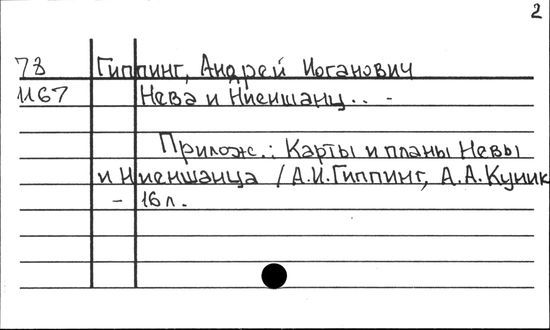 2
78 Гиппинг, Андрей Иоганович
1167 Нева и Ниеншанц.. -
Прилож.: Карты и планы Невы
и Ниеншанца / А.И.Гиппинг, А.А.Куник
- 16 л.